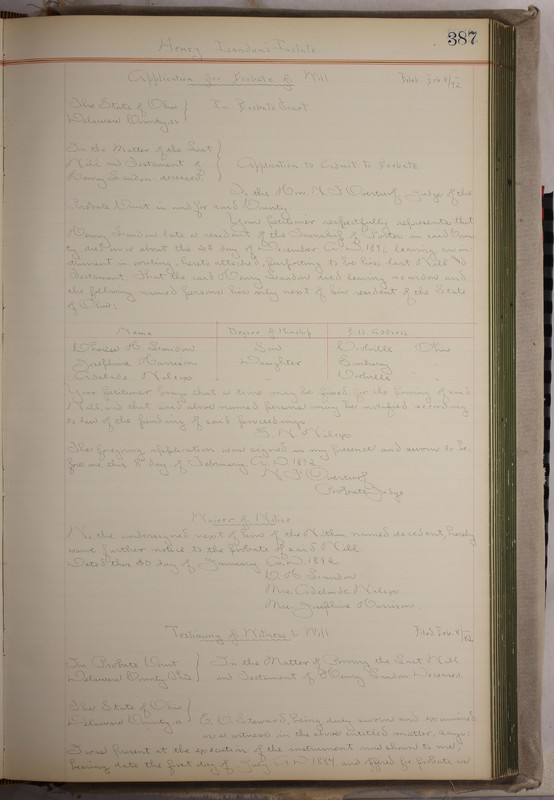 387
Henry Leandon's Estate
Application for Probate of Will Filed Feb. 8/92
The State of Ohio } In Probate Court
Delaware County, ss
In the Matter of the Last
Will and Testament of Application to Admit to Probate
Henry deceased.
To the Hon. N. F. Overturf Judge of the
Probate Court in and for said County
Your Petitioner respectfully represents that
Henry late a resident of the Township of Porter in said Coun
ty, died on or about the 28 day of December A.D. 1891 leaving an in
strument in writing, hereto attached, purporting to be his last Will and
Testament. That the said Henry died leaving no widow and
the following named persons his only next of kin resident of the State
of Ohio:
Name Degree of Kinship P.O. Address
Charles H. Son Ohio
Josephine Harrison Daughter Sunbury "
Adelaide " "
Your petitioner prays that a time may be fixed for the proving of said
Will, and that said above named persons may be notified according
to law of the pending of said proceedings
The foregoing application was signed in my presence and sworn to be-
fore me this 8 day of February A.D. 1892
N. F. Overturf
Probate Judge
Waiver of Notice
We, the undersigned next of kin of the within named decedent, hereby
waive further notice to the probate of said Will
Dated this 30 day of January A.D. 1892
Mrs. Adelaide
Mrs. Josephine Harrison
Testimony of Witness to Will Filed Feb. 8/92
In Probate Court } In the Matter of Proving the Last Will
Delaware County, Ohio and Testament of Henry Deceased
The State of Ohio }
Delaware County, ss being duly sworn and examined
as a witness in the above entitled matter, says:
I was present at the execution of the instrument now shown to me,
bearing date the first day of July A.D. 1884 and offered for probate as